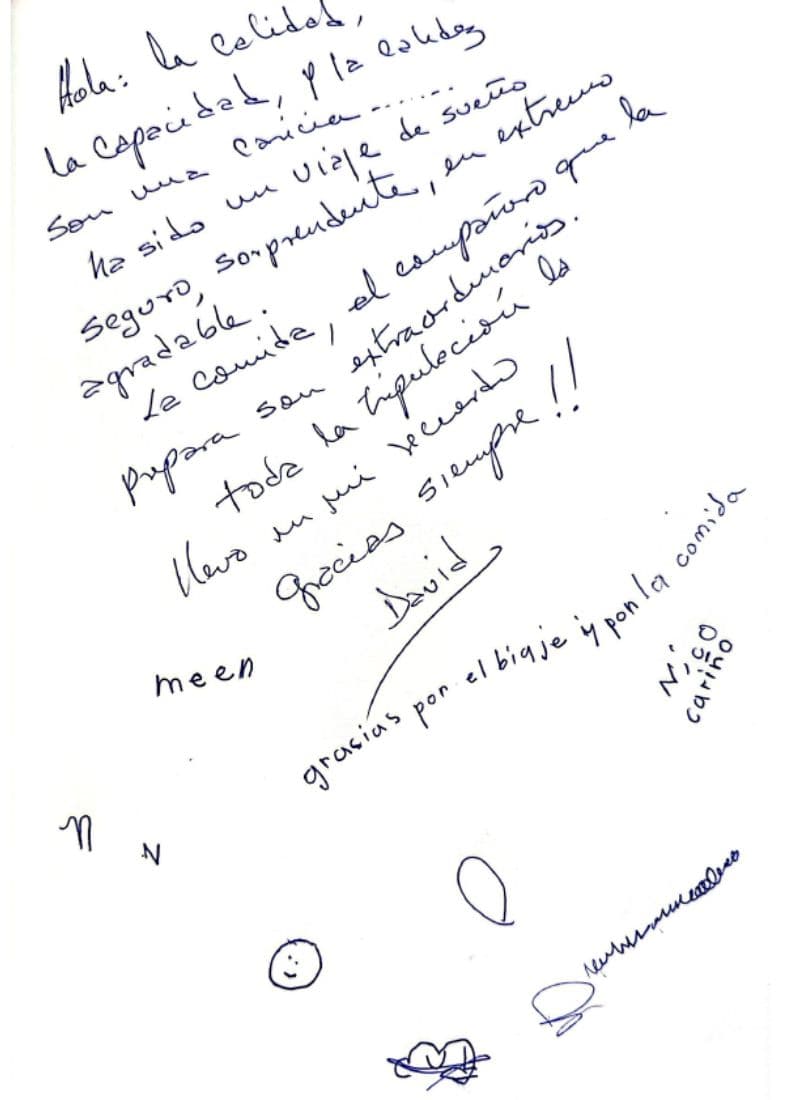 Hola: la calidad,
la capacidad, y la calidez
son una caricia .......
ha sido un viaje de sueño
seguro, sorprendente, en extremo
agradable.
La comida, el compañero que la
prepara son extraordinarios.
toda la tripulación la
llevo en mi recuerdo
Gracias siempre!!
David
meen
grasias por el biaje y por la comida
Nico
cariño
n
N